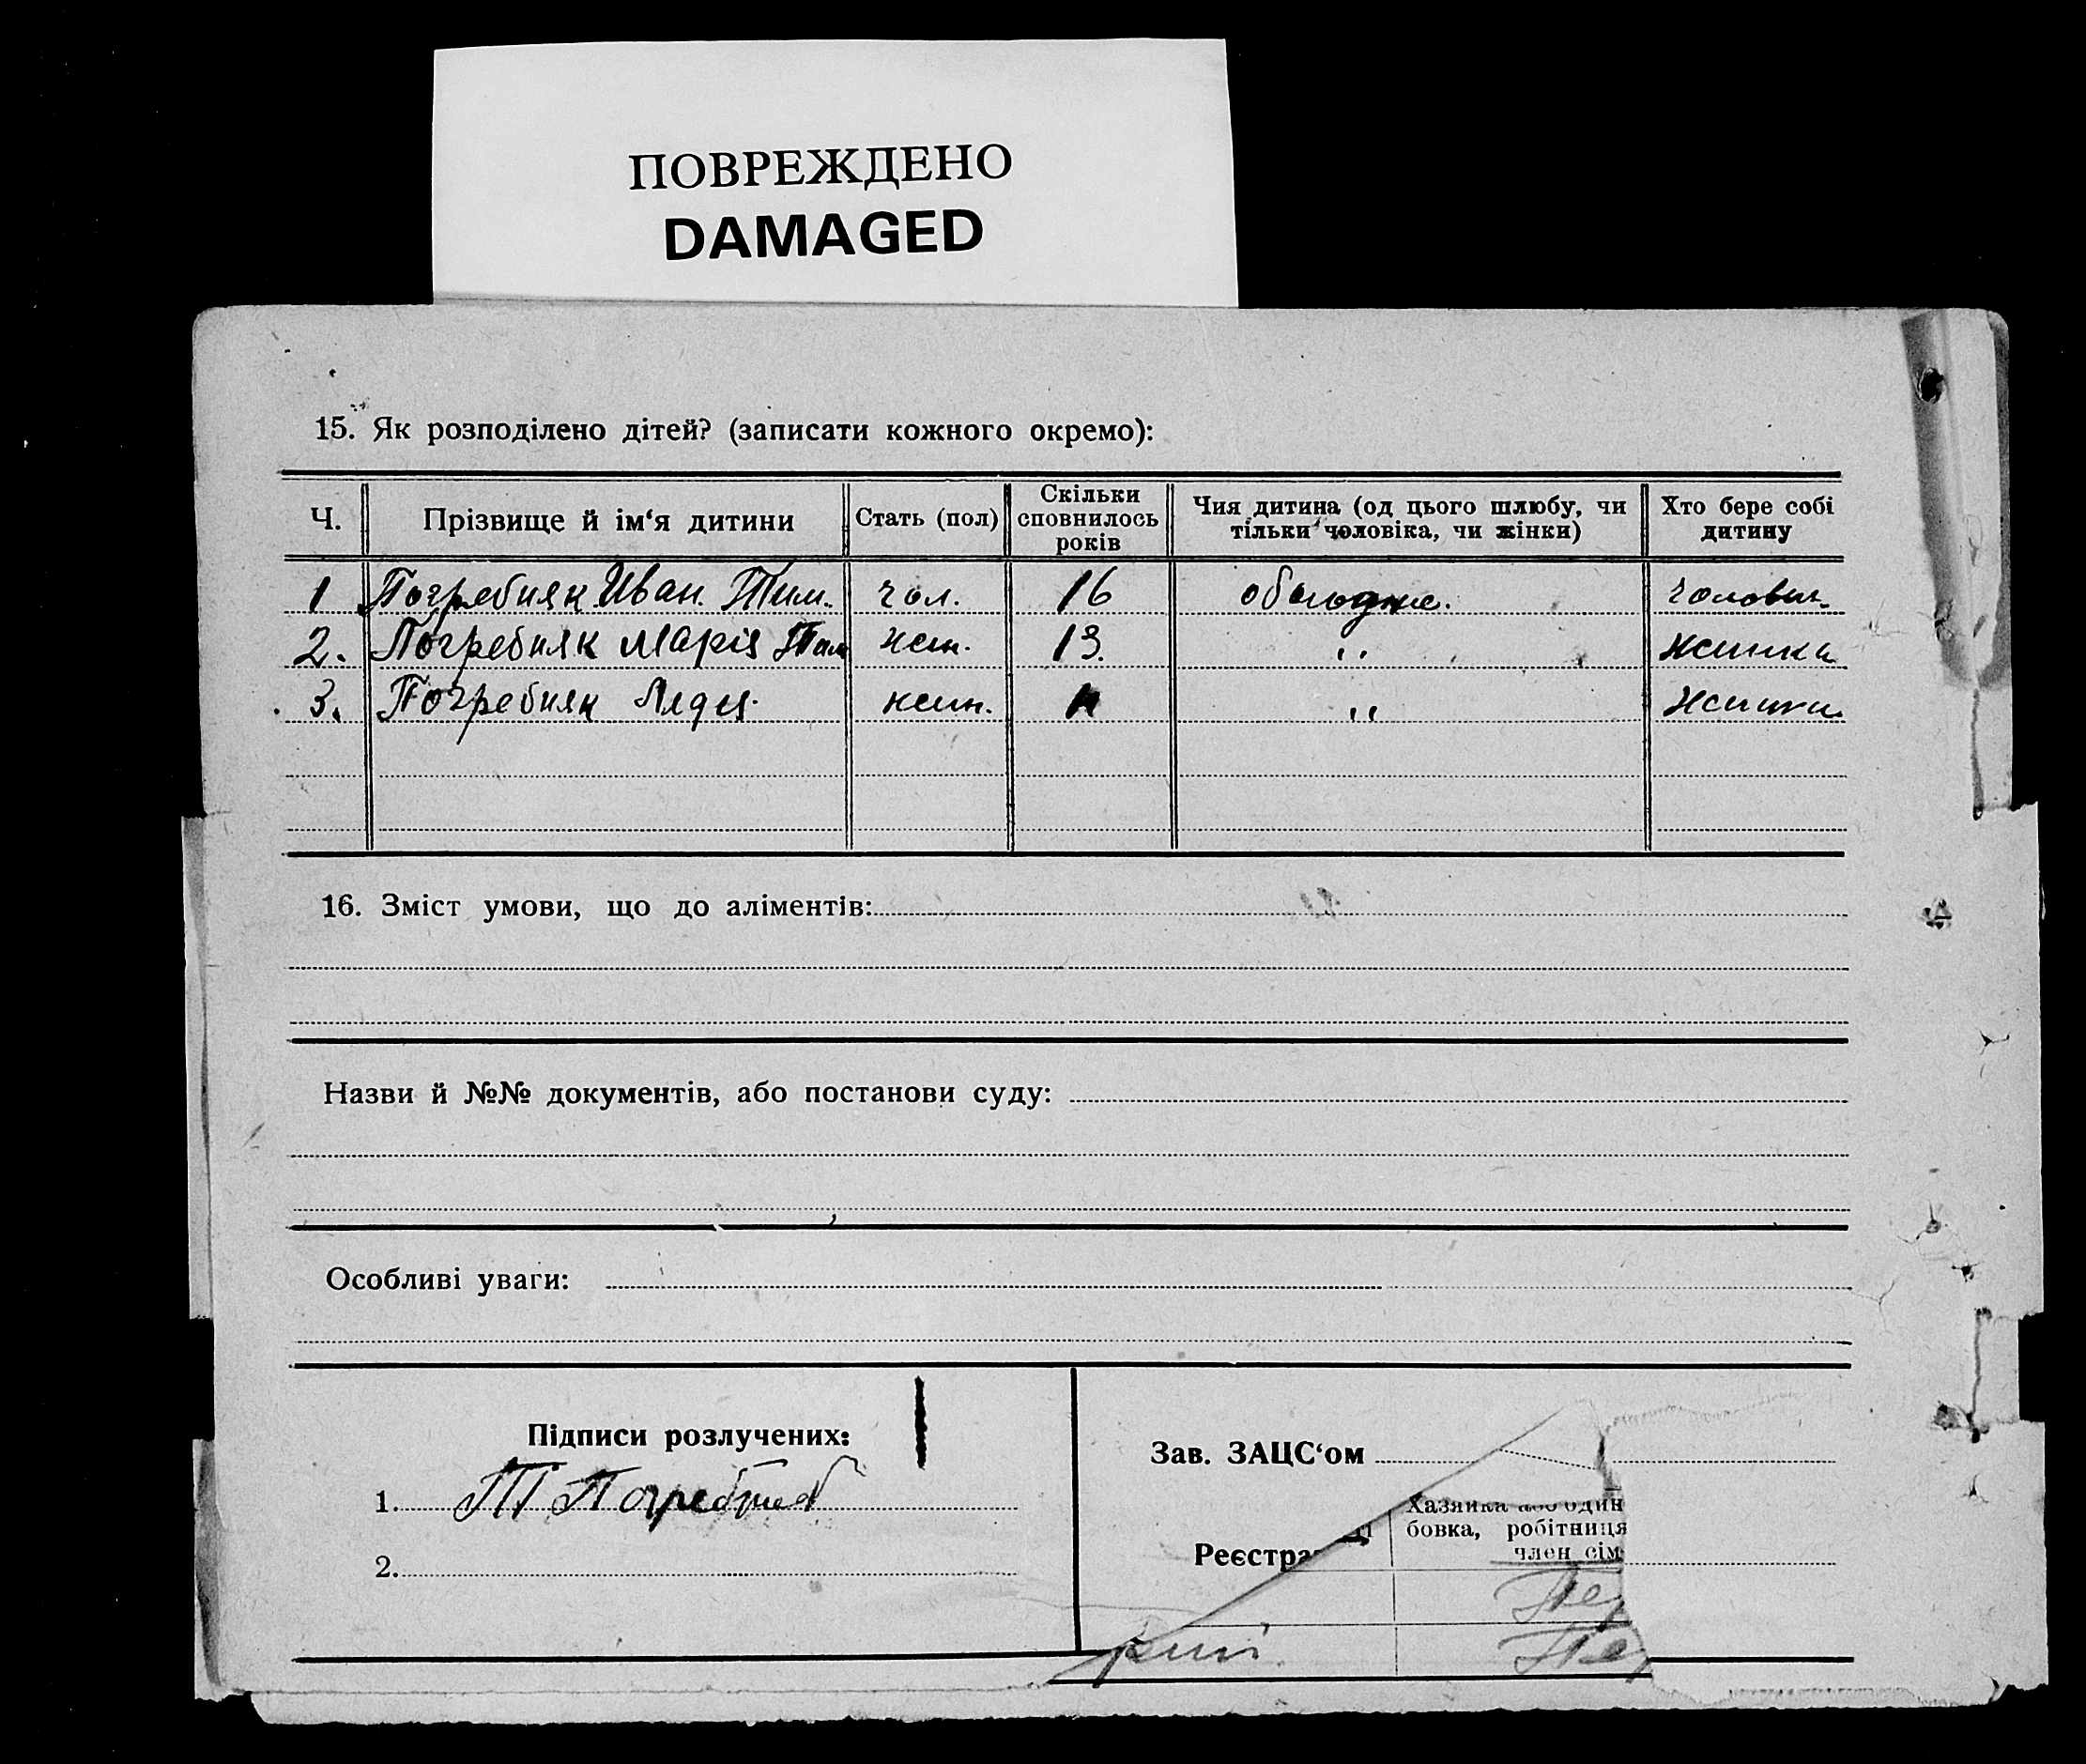 ПОВРЕЖДЕНО
DAMAGED
15. Як розподілено дітей? (записати кожного окремо):
Ч. Прізвище й ім‘я дитини Стать (пол) Скільки сповнилось років Чия дитина (од цього шлюбу, чи тільки чоловіка, чи жінки) Хто бере собі дитину
1 Погребняк Иван Тим. чол. 16 чоловік
2. Погребняк Марія Тим жін. 13. " жінка
3. Погребняк Лідія жін. " жінка
16. Зміст умови, що до аліментів:
Назви й №№ документів, або постанови суду:
Особливі уваги:
Підписи розлучених:
1. Т Погребняк
2.
Зав. ЗАЦС‘ом
Хазяйка або один
бовка, робітниця
член сім
Реєстра
Пе
Пе